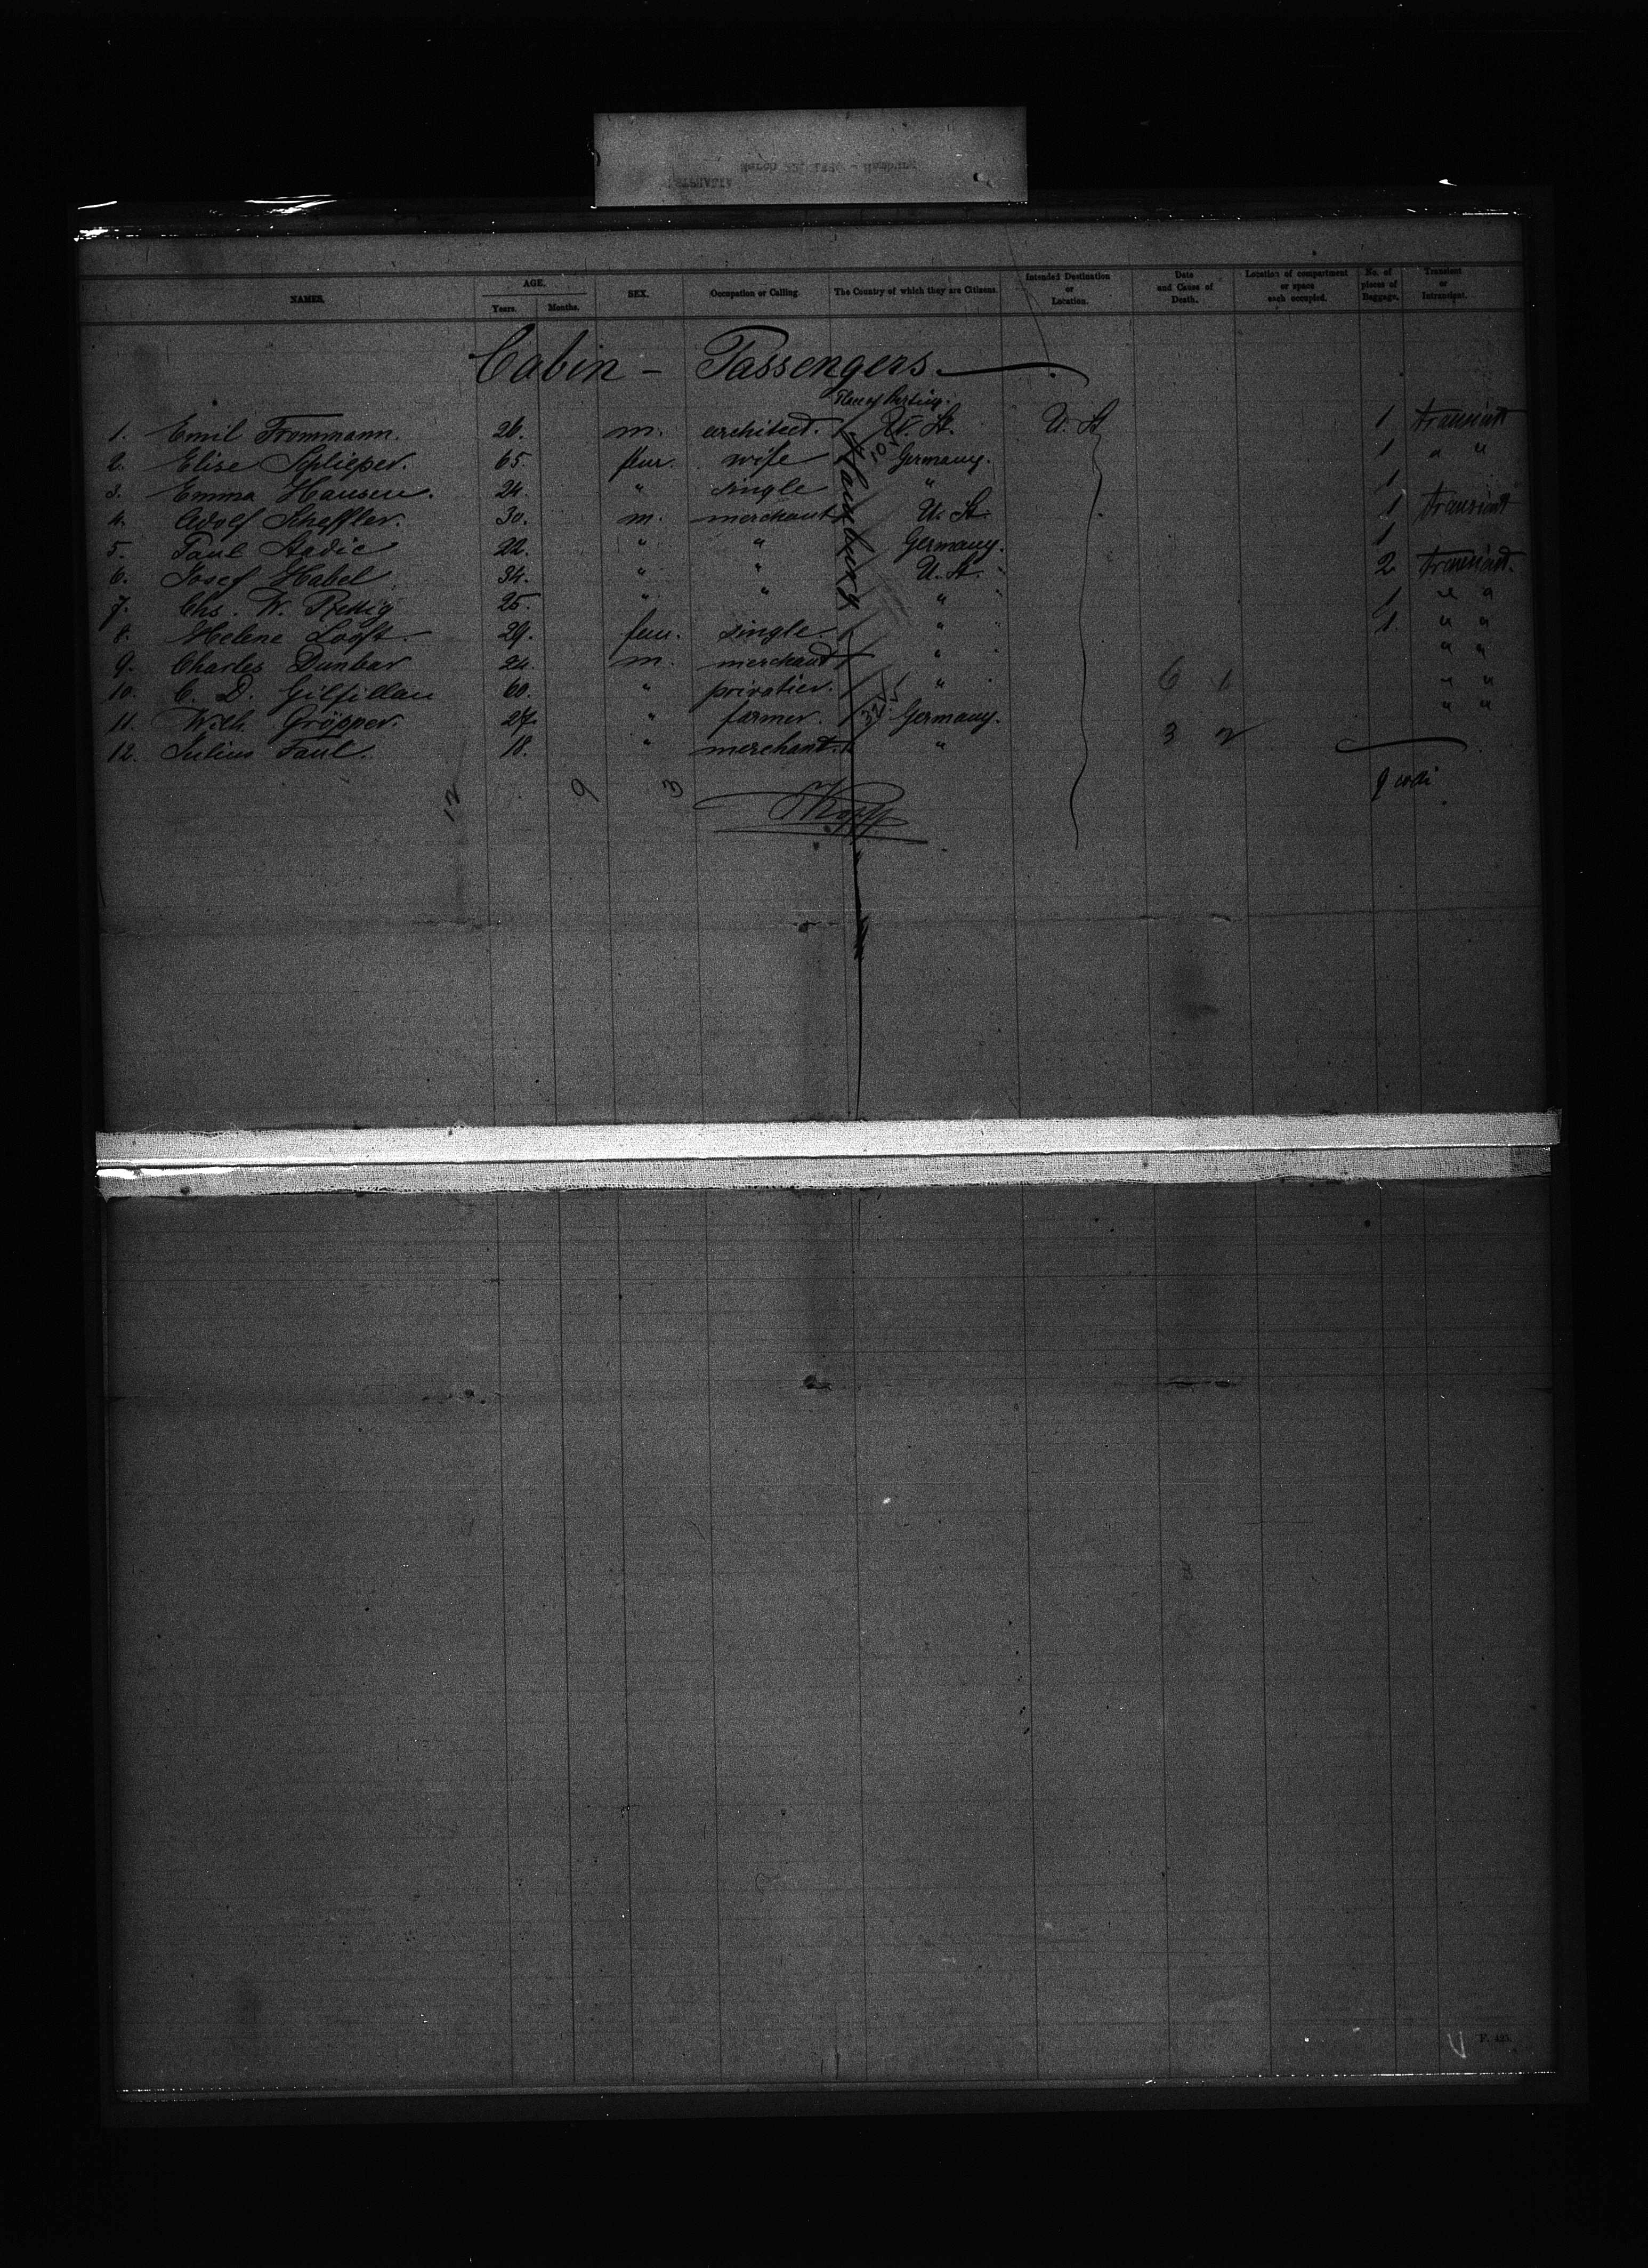 NAMES. AGE. Years. Months. SEX. Occupation or Calling The Country of which they are Citizens. Intended Destination or Location. Date and Cause of Death. Location of compartment or space each occupied. No. of pieces of Baggage. Transient or Intransient.
Cabin - Passengers.
1. Emil Frommann. 26. m. architect. U. St. U. St 1 transient
2. Elise Schlieper. 65. fem. wife Germany. 1 " "
3. Emma Hansen. 24. " single " 1
4. Adolf Scheffler. 30. m. merchant U. St. 1 transient
5. Paul 22. " " Germany. 1
6. Josef Habel 34. " " U. St. 2 transient.
7. Chs. W. Rettig 25. " " " 1 " "
8. Helene Looft 29. fem. single. " 1. " "
9. Charles Dunbar 24. m. merchant " " "
10. C. D. Gilfillan 60. " privatier. " 6 1 " "
11. Wilh. Gröpper. 27. " farmer. Germany. " "
12. Julius Faul. 18. " merchant. " 3 2
Hamburg
12 9 3 9 colli
F. 425.